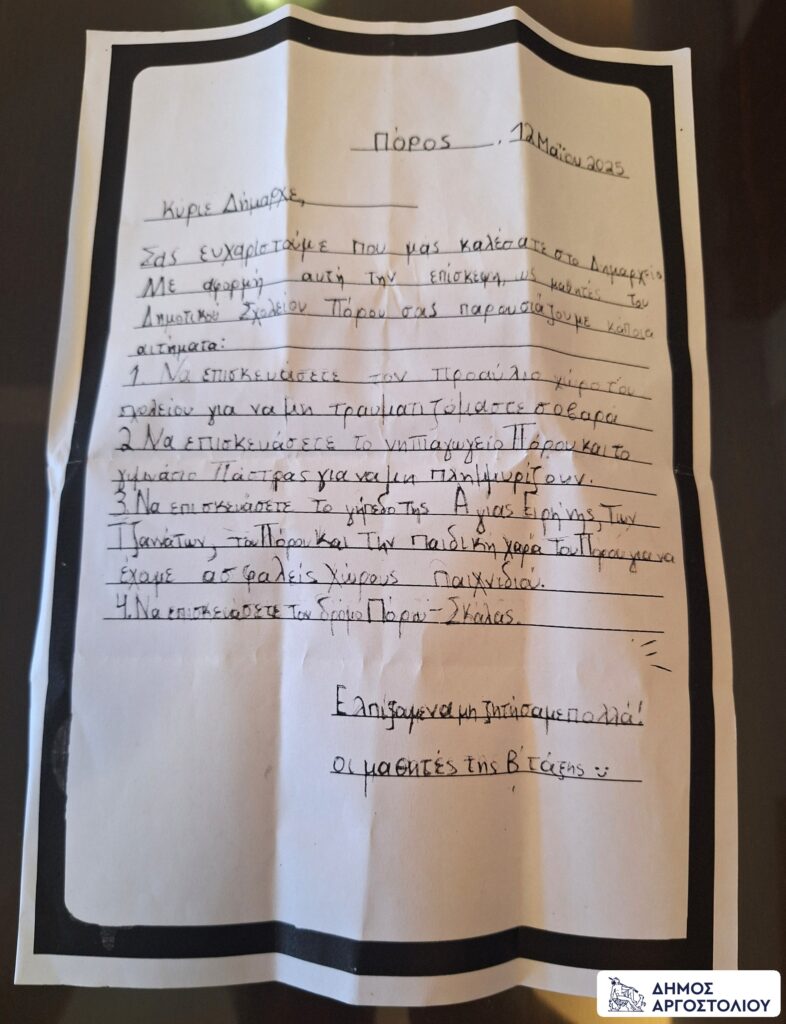 Πόρος, 12 Μαΐου 2025
Κύριε Δήμαρχε,
Σας ευχαριστούμε που μας καλέσατε στο Δημαρχείο
Με αφορμή αυτή την επίσκεψη, ως μαθητές του
Δημοτικου Σχολείου Πόρου σας παρουσιάζουμε κάποια
αιτήματα:
1. Να επισκευάσετε τον προαύλιο χώρο του
σχολείου για να μη τραυματιζόμαστε σοβαρά
2. Να επισκευάσετε το νηπιαγωγείο Πόρου και το
γυμνάσιο Πάστρας για να μη πλημμυρίζουν.
3. Να επισκευάσετε το γήπεδο της Αγίας Ειρήνης, των
Τζανάτων, του Πόρου και την παιδική χαρά του Πόρου για να
έχουμε ασφαλείς χώρους παιχνιδιά.
4. Να επισκευάσετε τον δρόμο Πόρου - Σκάλας.
Ελπίζουμε να μη ζητήσαμε πολλά!
οι μαθητές της Β' τάξης
ΔΗΜΟΣ
ΑΡΓΟΣΤΟΛΙΟΥ